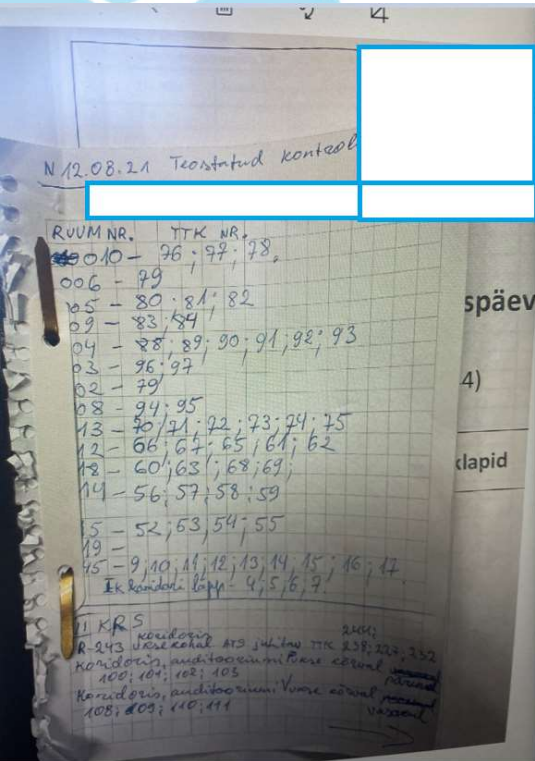 N 12.08.21 Teostatud kontrol
RUUM NR. TTK NR.
010 - 76; 77; 78.
006 - 79
05 - 80; 81; 82
späev
09 - 83; 84
04 - 88; 89; 90; 91; 92; 93
03 - 96; 97
4)
02 - 79
08 - 94; 95
13 - 70; 71; 72; 73; 74; 75
12 - 66; 67; 65; 61; 62
klapid
18 - 60; 63; 68; 69;
14 - 56; 57; 58; 59
15 - 52; 53, 54; 55
19 -
45 - 9; 10; 11; 12; 13; 14; 15; 16; 17
koridori lõpp - 4; 5; 6; 7.
II KRS
koridoris 244;
R-243 ukse kohal ATS juhitav TTK 238; 227; 232
Koridoris, auditooriumi P ukse kõrval
100; 101; 102; 103
Koridoris, auditooriumi V ukse kõrval
108; 109; 110; 111